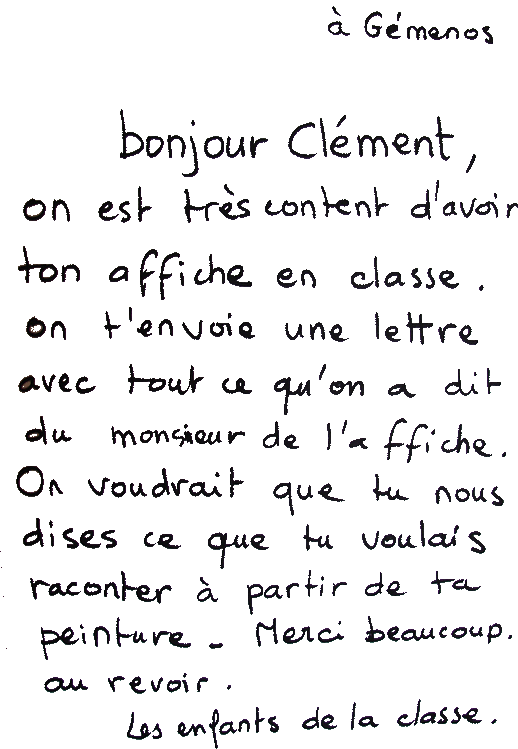 à Gémenos
bonjour Clément,
on est très content d'avoir
ton affiche en classe.
on t'envoie une lettre
avec tout ce qu'on a dit
du monsieur de l'affiche.
On voudrait que tu nous
dises ce que tu voulais
raconter à partir de ta
peinture - Merci beaucoup.
au revoir.
Les enfants de la classe.